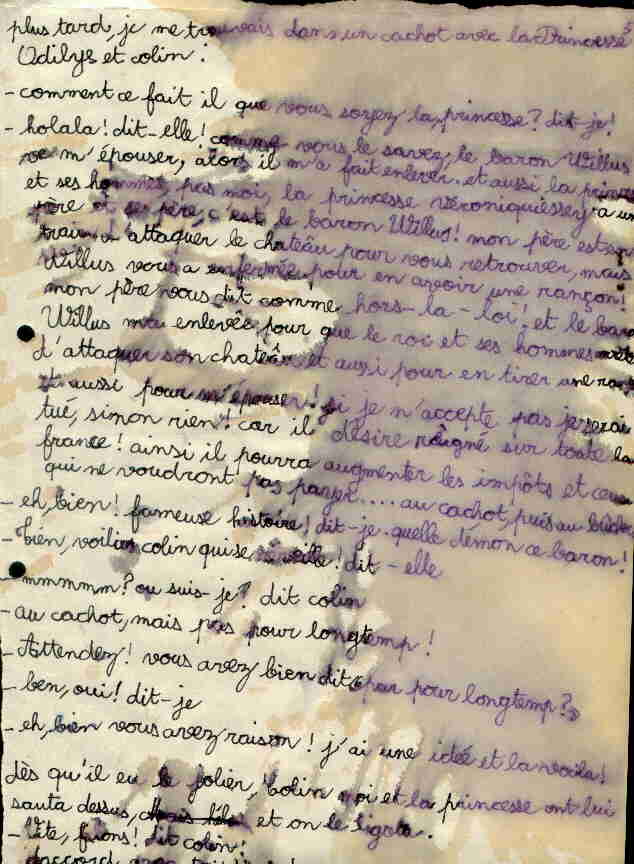 plus tard, je me trouvais dans un cachot avec la Princesse
Odilys et colin :
- comment ce fait il que vous soyez la princesse? dit-je!
- holala! dit-elle! comme vous le savez, le baron Willus
ve m'épouser, alors il m'a fait enlever. et aussi la
et ses hommes, pas moi, la princesse
père et ses père, c'est le baron Willus! mon père est en
train d'attaquer le chatêau pour vous retrouver, mais
Willus vous a enfermée pour en avoir une rançon!
mon père vous dit comme hors-la-loi! et le
Willus m'a enlevêe pour que le roi et ses hommes
d'attaquer son chateâu et aussi pour en tirer une
et aussi pour m'épouser! si je n'accepte pas je serai
tué, sinon rien! car il désire rêigné sur toute la
france! ainsi il pourra augmenter les impôts et ceux
qui ne voudront pas payer.... au cachot, puis au
- eh, bien! fameuse histoire! dit-je. quelle démon ce baron!
- bien, voilia colin qui se réveille! dit-elle
- mmmmm? ou suis-je? dit colin
- au cachot, mais pas pour longtemp!
- Attendez! vous avez bien dit pas pour longtemp?
- ben, oui! dit-je
- eh, bien vous avez raison! j'ai une idée et la voila!
dès qu'il eu le jolier, colin moi et la princesse ont lui
sauta dessus, et on le ligota.
- Vite, fuions! dit colin!